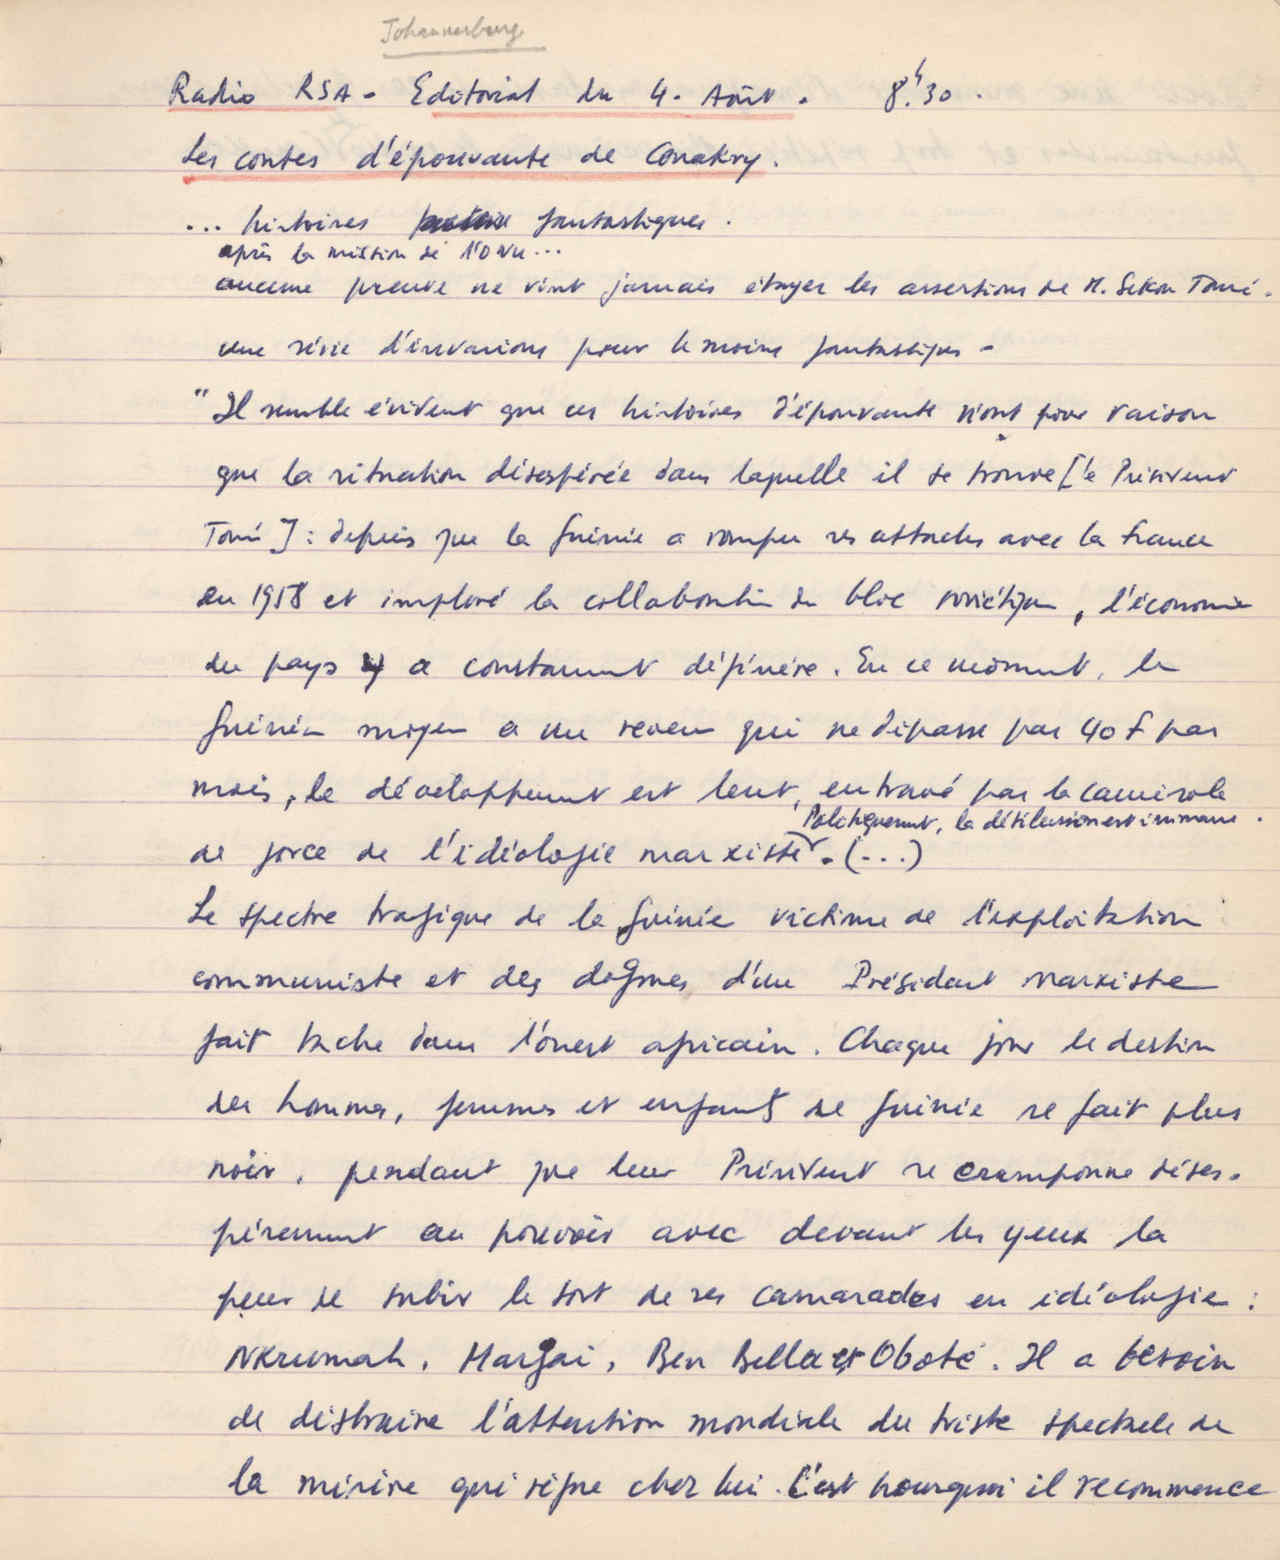 Johannesburg
Radio RSA - Editorial du 4. Août. 8h.30.
Les contes d'épouvante de Conakry.
... histoires fantastiques.
après la mission de l'ONU...
aucune preuve ne vint jamais étayer les assertions de M. Sekou Touré.
une série d'invasions pour le moins fantastiques -
"Il semble évident que ces histoires d'épouvante n'ont pour raison
que la situation désespérée dans laquelle il se trouve [le Président
Touré] : depuis que la Guinée a rompu ses attaches avec la France
en 1958 et imploré la collaboration du bloc soviétique, l'économie
du pays a constamment dégénéré. En ce moment, le
Guinéen moyen a un revenu qui ne dépasse pas 40 F par
mois, le développement est lent, entravé par la camisole
Politiquement, la désillusion est immense.
de force de l'idéologie marxiste. (...)
Le spectre tragique de la Guinée victime de l'exploitation
communiste et des dogmes d'un Président marxiste
fait tache dans l'ouest africain. Chaque jour le destin
des hommes, femmes et enfants de Guinée se fait plus
noir, pendant que leur Président se cramponne déses-
pérément au pouvoir avec devant les yeux la
peur de subir le sort de ses camarades en idéologie :
NKrumah, Margai, Ben Bella et Oboté. Il a besoin
de distraire l'attention mondiale du triste spectacle de
la misère qui règne chez lui. C'est pourquoi il recommence